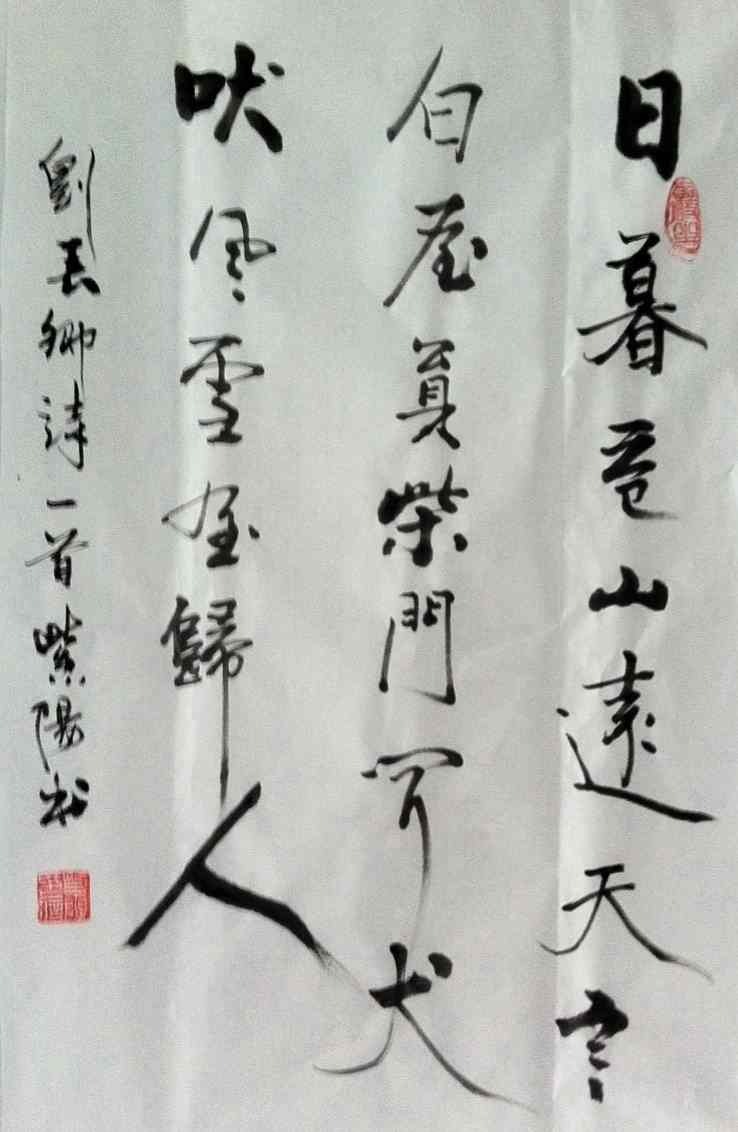 日暮苍山遠天寒
白屋貧柴門闻犬
吠风雪夜歸人
劉長卿詩一首紫陽書